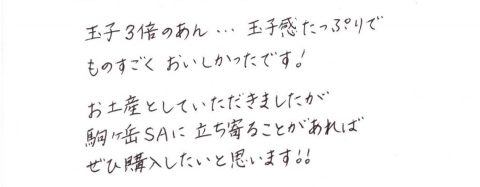 玉子3倍のあん… 玉子感たっぷりで
ものすごく おいしかったです!
お土産としていただきましたが
駒ヶ岳SAに 立ち寄ることがあれば
ぜひ購入したいと思います!!